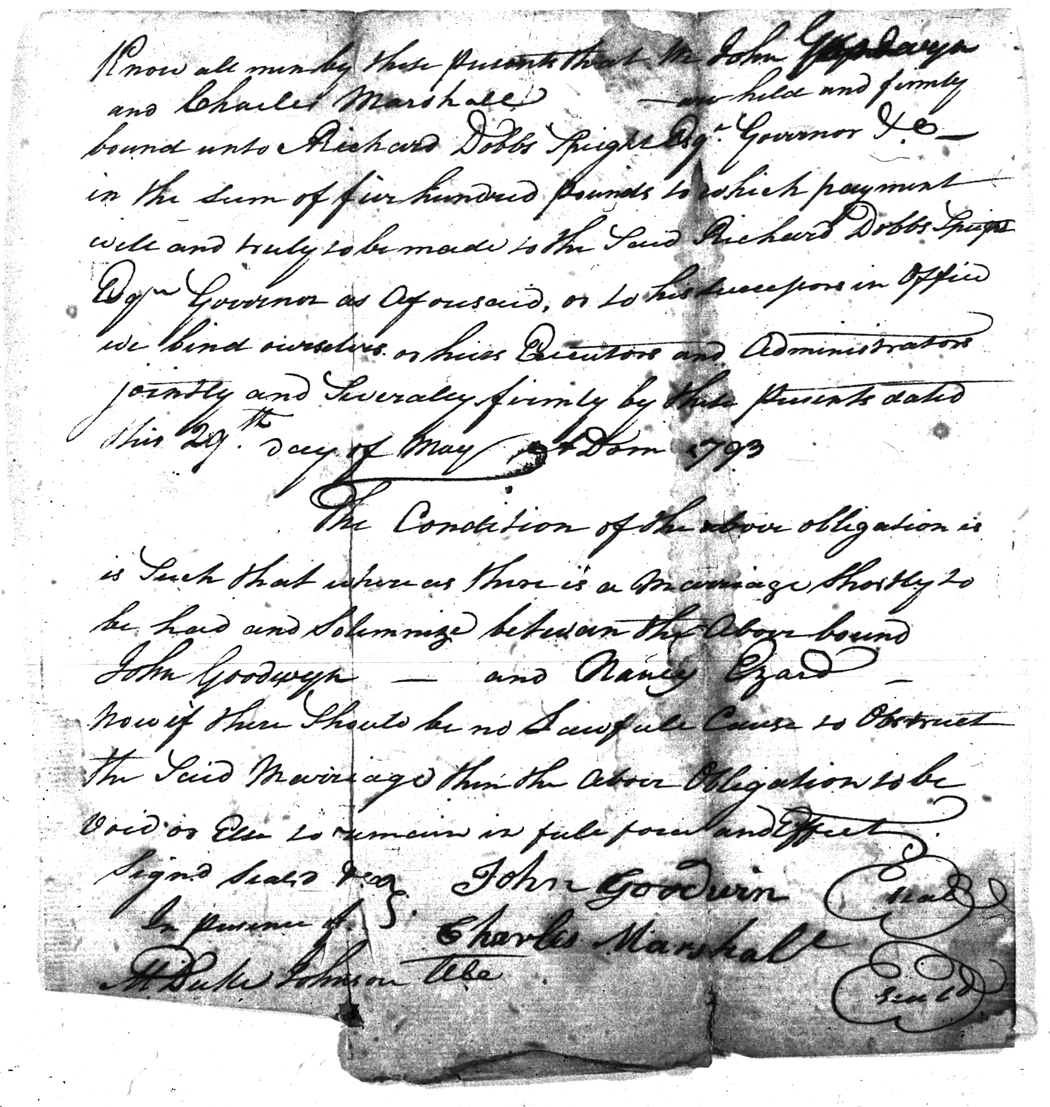 Know all men by these presents that We John Goodwyn
and Charles Marshall — are held and firmly
bound unto Richard Dobbs Speight Esqr. Governor &c —
in the sum of five hundred pounds to which payment
well and truly to be made to the Said Richard Dobbs Speight
Esqr Governor as Aforesaid, or to his successors in Office
we bind ourselves or heirs Executors and Administrators
jointly and Severaley firmly by these presents dated
this 29th. day of May Dom 1793
The Condition of the above obligation is
is Such that where as there is a Marriage Shortly to
be had and Solemnize between the Above bound
John Goodwyn — and Nancy Ezard —
Now if there Should be no Lawfull Cause to Obstruct
the Said Marriage then the above Obligation to be
Void or Else to remain in full force and Effect.
Signd Seald &c
In presence of
John Goodwin Seal
Charles Marshall Seald
M Duke Johnson